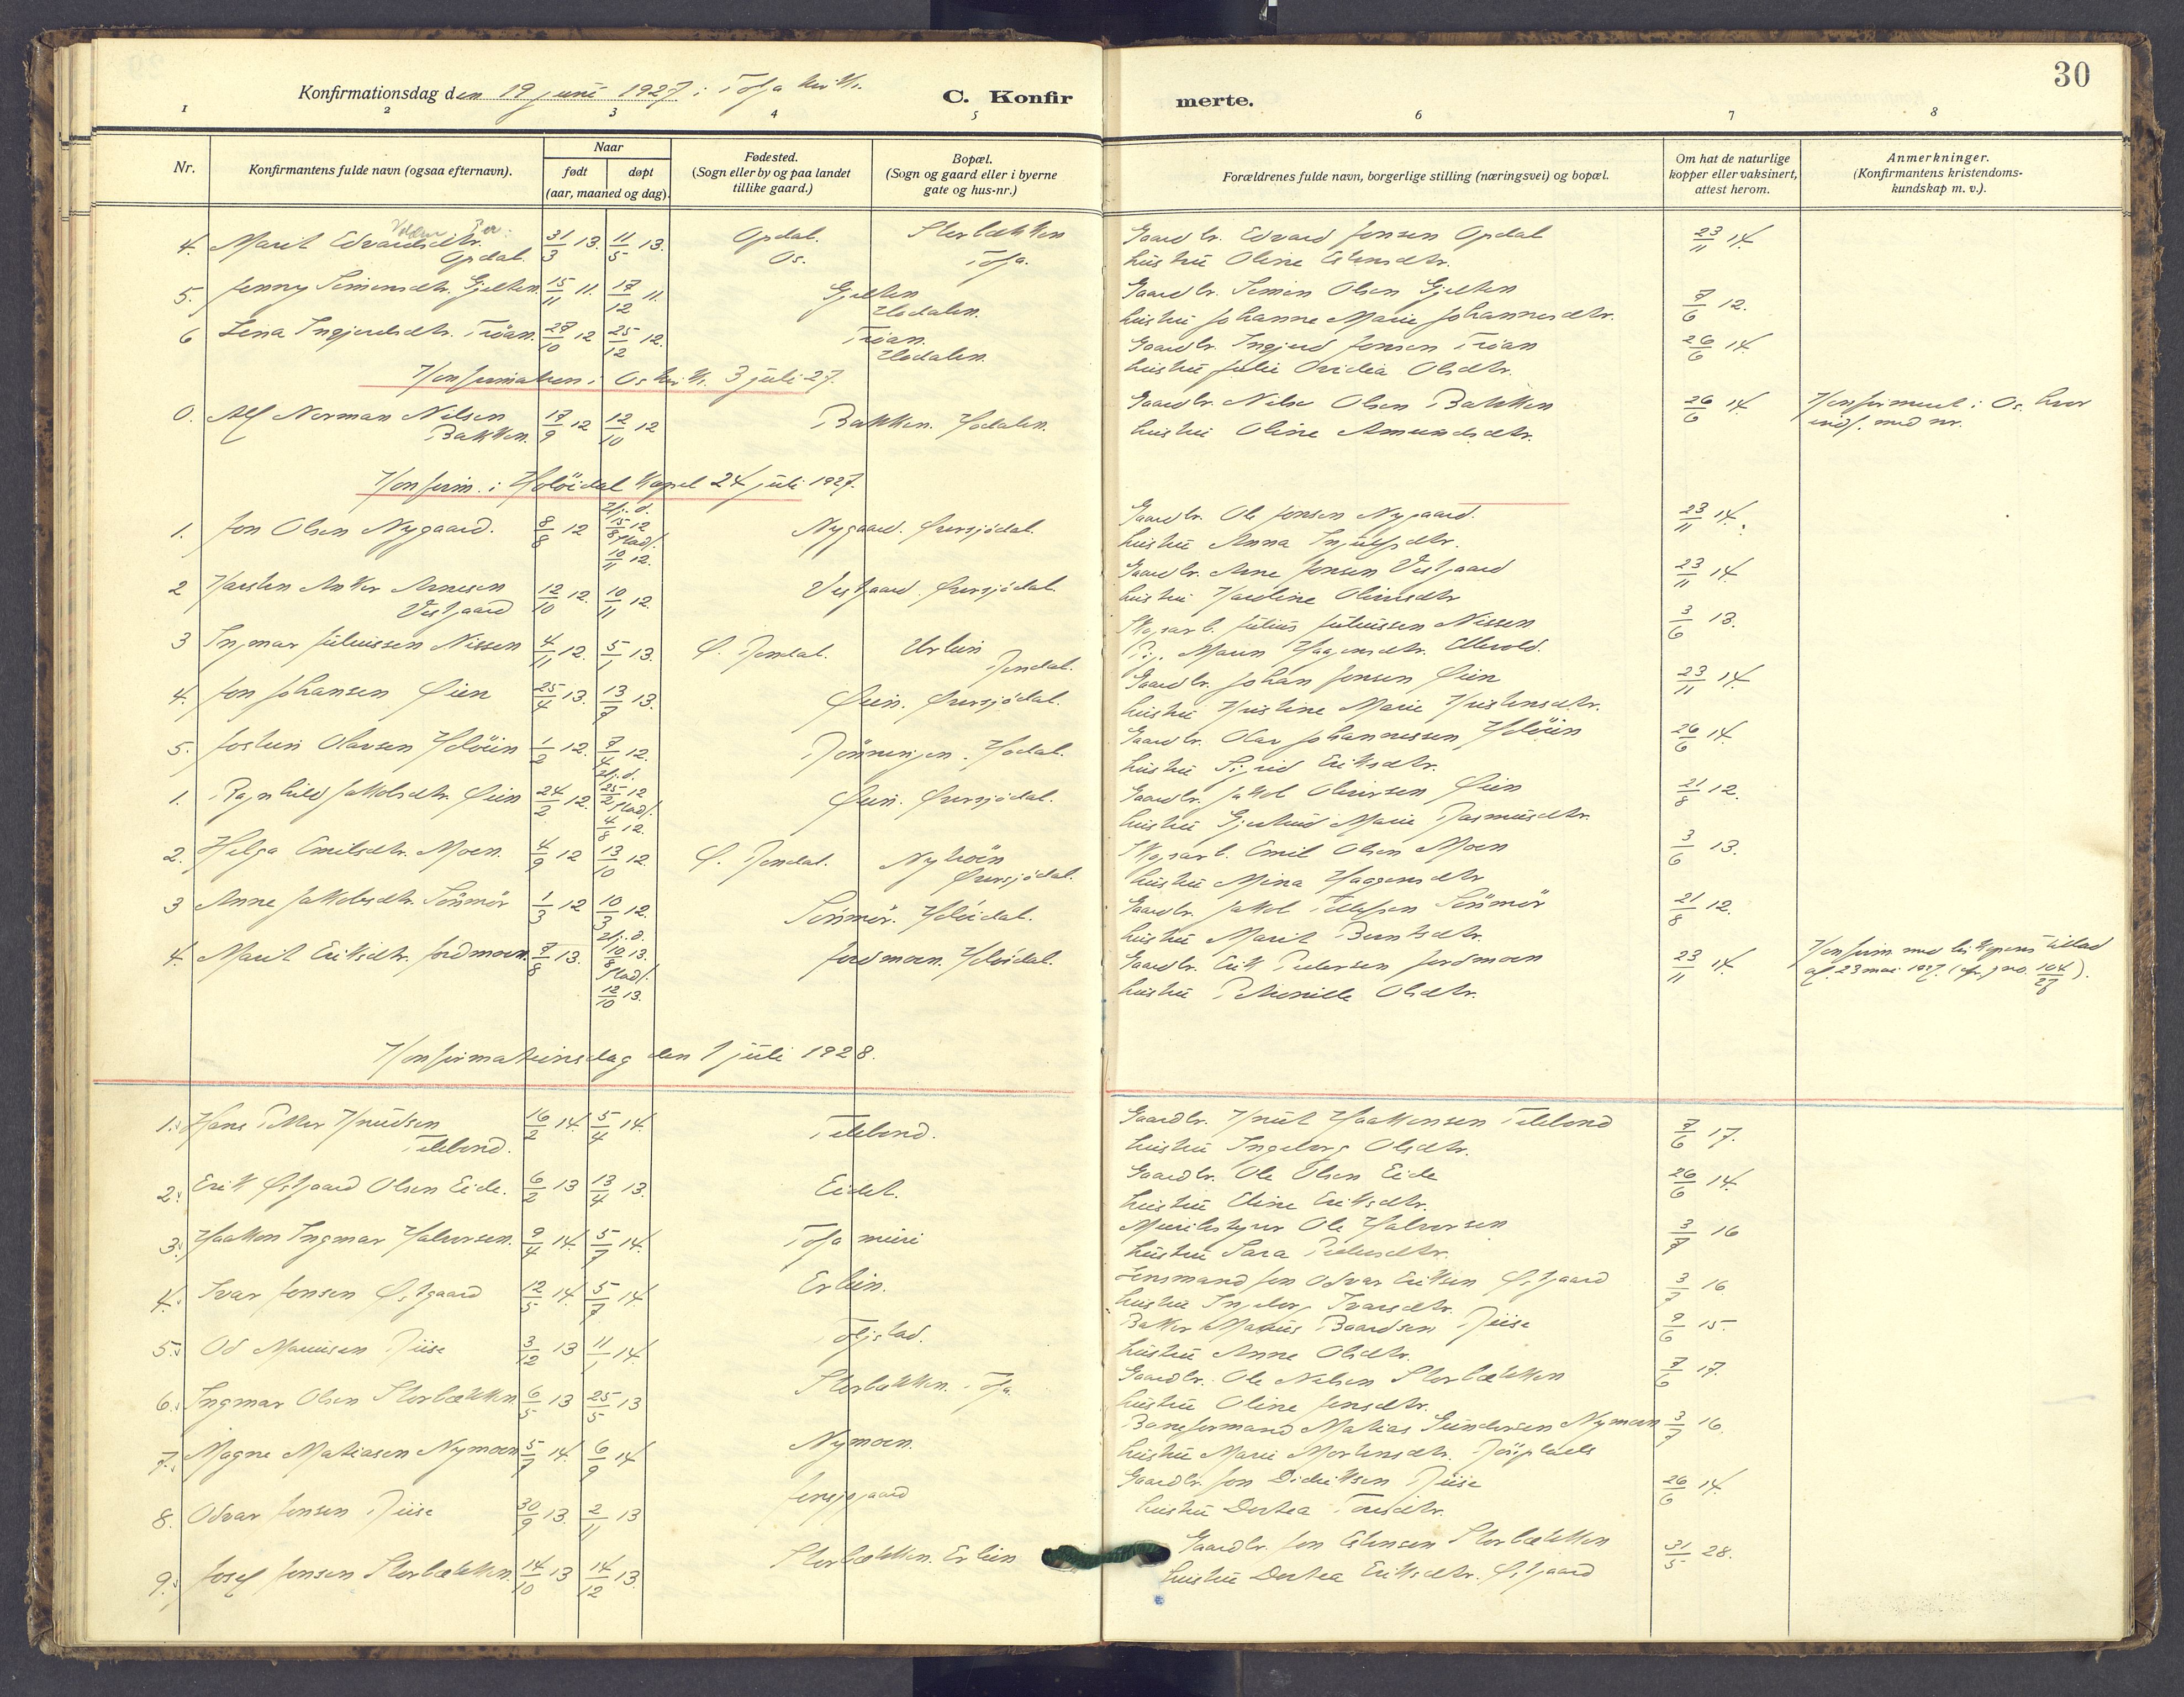 30
Konfirmationsdag den 19 juni 1927 i Tolga kirke.
C. Konfirmerte.
1 2 3 4 5 6 7 8
Nr.
Konfirmantens fulde navn (ogsaa efternavn).
Naar
født døpt
(aar, maaned og dag).
Fødested.
(Sogn eller by og paa landet
tillike gaard.)
Bopæl.
(Sogn og gaard eller i byerne
gate og hus-nr.)
Forældrenes fulde navn, borgerlige stilling (næringsvei) og bopæl.
Om hat de naturlige
kopper eller vaksinert,
attest herom.
Anmerkninger.
(Konfirmantens kristendoms-
kundskap m. v.).
4. Marit Edvardsdtr. 31/3 13. 11/5 13. Opdal. Storbækken Gaardbr. Edvard Jonsen Opdal 23/11 14.
Opdal. Os. Tolga. hustru Oline Estensdtr.
5. Jenny Simensdtr. Gjelten. 15/11 11. 17/12 11. Gjelten Gaardbr. Simen Olsen Gjelten 7/6 12.
Hodalen. hustru Johanne Marie Johannesdtr.
6 Lena Ingjerdsdtr. Trøan. 27/10 12 25/12 12. Trøan. Gaardbr. Ingjerd Jonsen Trøan 26/6 14.
Hodalen. hustru Julie Ovidia Olsdtr.
Konfirmation i Os kirke. 3 juli 27.
0. Alf Norman Nilsen 17/9 12 12/10 12 Bakken. Hodalen. Gaardbr. Nils Olsen Bakken 26/6 14. Konfirmert i Os. hvor
Bakken. hustru Oline Amundsdtr. indf. med nr.
Konfirm. i Holöidal kapel 24 juli 1927.
1. Jon Olsen Nygaard. 8/8 12 Hj. d. 15/8 12 stadf. 10/11 12. Nygaard. Øversjødal. Gaardbr. Ole Jonsen Nygaard. 23/11 14.
hustru Anna Ingulfsdtr.
2 Karsten Anker Arnesen 12/10 12. 10/11 12. Vestgaard. Øversjødal. Gaardbr. Arne Jonsen Vestgaard 23/11 14.
Vestgaard hustru Karoline Olinesdtr
3 Ingmar Juliussen Nissen 4/11 12. 5/1 13. Ø. Rendal. Urlien Skogsarb. Julius Juliussen Nissen 3/6 13.
Rendal. Pi. Maren Haagensdtr. Akrold.
4. Jon Johansen Øien 25/4 13. 13/7 13. Øien. Øversjødal. Gaardbr. Johan Jonsen Øien 23/11 14.
hustru Kristine Marie Kristensdtr.
5. Jostein Olavsen Holöien 1/2 12. 7/4 12. Rönningen. Hodal. Gaardbr. Olav Johannessen Holöien 26/6 14.
hustru Sigrid Eriksdtr.
1. Ragnhild Jakobsdtr. Øien 24/2 12. Hj. d. 25/2 12 stadf. 4/8 12. Øien. Øversjødal. Gaardbr. Jakob Oliversen Øien 21/8 12.
hustru Gjertrud Marie Rasmusdtr.
2. Helga Emilsdtr. Moen. 4/9 12 13/10 12. Ø. Rendal. Nyhöen Skogsarb. Emil Olsen Moen 3/6 13.
Øversjødal. hustru Mina Haagensdtr
3 Anne Jakobsdtr. Sörmör 1/3 12 10/3 12. Sörmör. Holöidal. Gaardbr. Jakob Tollefsen Sörmör 21/8 12.
hustru Marit Berntsdtr.
4. Marit Eriksdtr. Jordmoen. 7/8 13. Hj. d. 10/8 13. stadf. 12/10 13. Jordmoen. Holöidal. Gaardbr. Erik Pedersen Jordmoen 23/11 14. Konfirm. med biskopens tillad
hustru Petronille Olsdtr. af 23 mai 1927. (cfr. jno. 104/27).
Konfirmationsdag den 1 juli 1928.
1. Hans Peder Knudsen 16/2 14. 5/4 14. Telebond. Gaardbr. Knut Haakonsen Telebond 7/6 17.
Telebond. hustru Ingeborg Olsdtr.
2. Erik Østgaard Olsen Eide. 6/2 13 13/4 13. Eidet. Gaardbr. Ole Olsen Eide 26/6 14.
hustru Eline Eriksdtr.
3. Haakon Ingmar Halvorsen. 9/4 14. 5/7 14. Tolga meieri Meieribestyrer Ole Halvorsen 3/7 16
hustru Sara Pedersdtr.
4. Ivar Jonsen Østgaard 12/5 14. 5/7 14. Erlien. Lensmand Jon Odvar Eriksen Østgaard 3/7 16
hustru Ingeborg Ivarsdtr.
5. Od Mariusen Riise 3/12 13 11/1 14. Toljstad. Baker Marius Baardsen Riise 9/6 15.
hustru Anne Olsdtr.
6. Ingmar Olsen Storbækken. 6/5 13 25/5 13 Storbækken. Tolga. Gaardbr. Ole Nilsen Storbækken 7/6 17.
hustru Oline Jonsdtr.
7. Magne Matiasen Nymoen 5/7 14. 6/9 14 Nymoen. Baneformand Matias Gundersen Nymoen 3/7 16.
hustru Marie Mortensdtr.
8. Odvar Jonsen Riise 30/9 13. 2/11 13 Jensgaard Gaardbr. Jon Didriksen Riise 26/6 14.
hustru Dortea Toresdtr.
9. Josef Jonsen Storbækken. 14/10 13 14/12 13. Storbækken. Erlien Gaardbr. Jon Estensen Storbækken 31/5 28.
hustru Dortea Eriksdtr. Østgaard